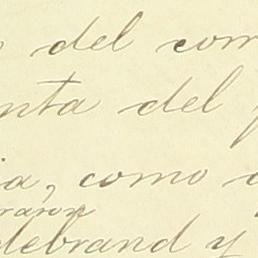 del com
nta del
ia, como
raron
debrand y